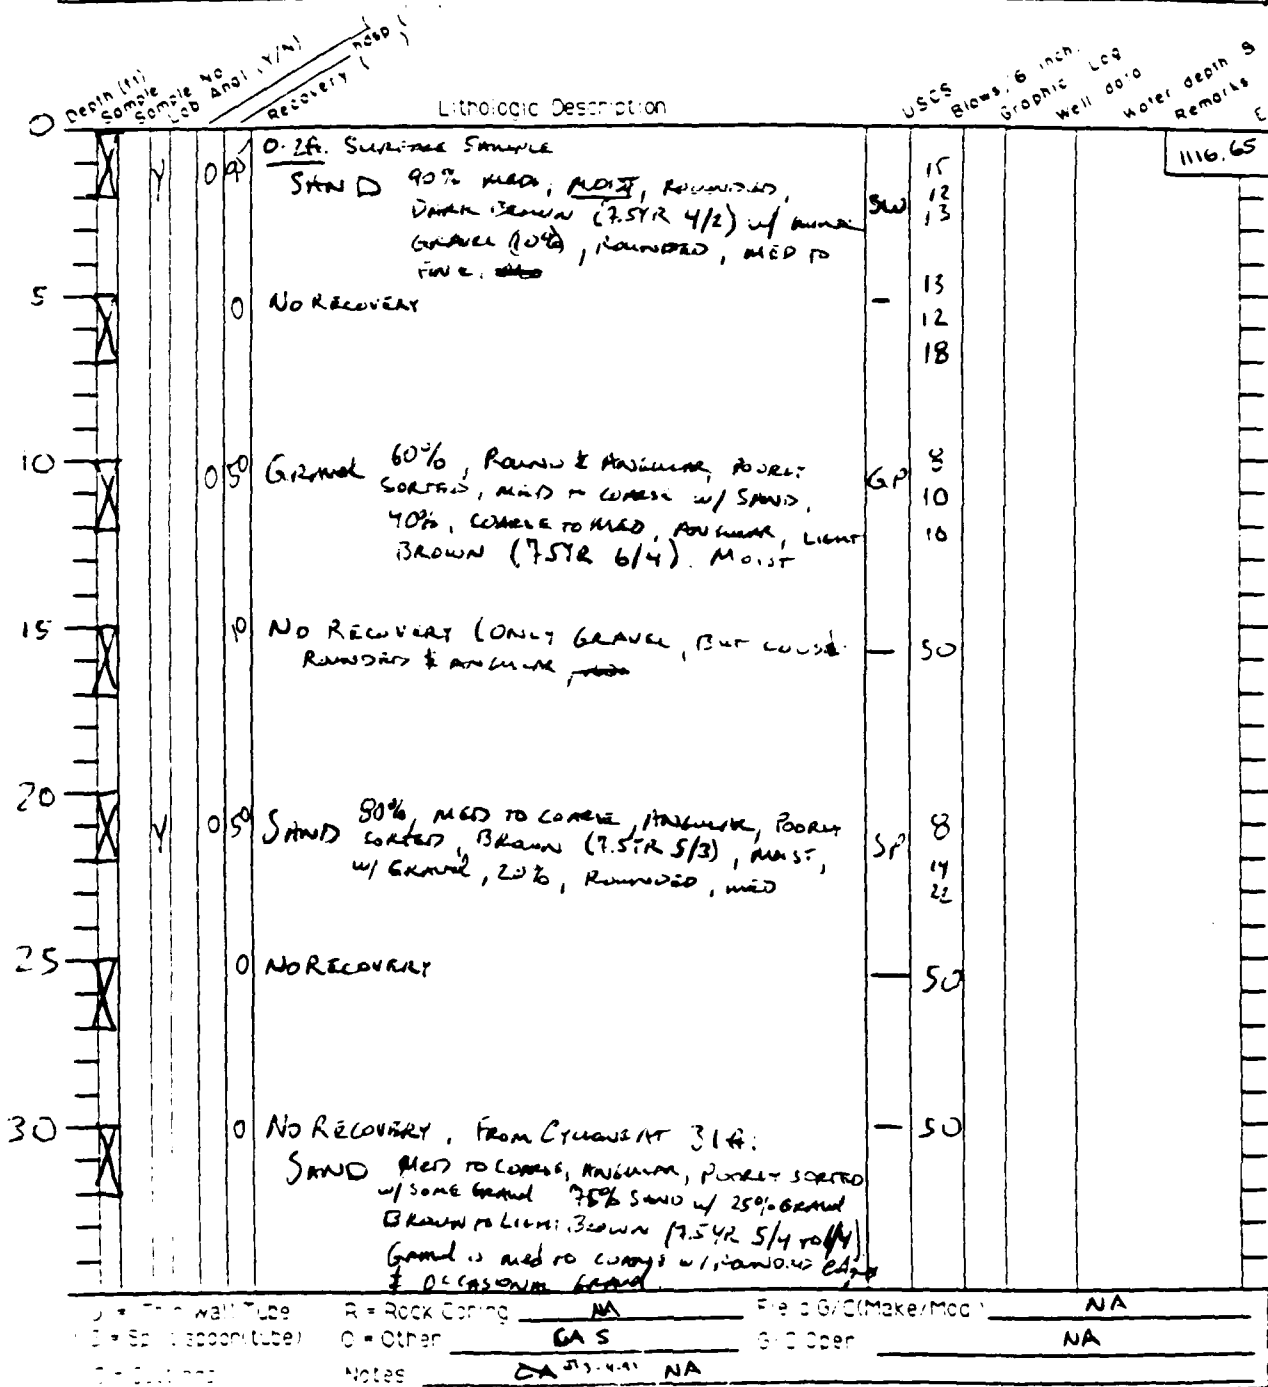 Depth (ft) Sample Sample No Lab Anal. (Y/N) Recovery ( Lithologic Description USCS Blows/6 inch. Graphic Log Well data Water depth Remarks
0 Y 0 95 0-2ft. SURFACE SAMPLE 15 1116.65
SAND 90% MED, MOIST, ROUNDED, 12
DARK BROWN (7.5YR 4/2) w/ SW 13
GRAVEL (10%), ROUNDED, MED TO
FINE.
5 0 NO RECOVERY — 13
12
18
10 0 50 GRAVEL 60%, ROUND & ANGULAR, POORLY GP 8
SORTED, MED TO COARSE w/ SAND, 10
40%, COARSE TO MED, ANGULAR, LIGHT 10
BROWN (7.5YR 6/4). MOIST
15 10 NO RECOVERY (ONLY GRAVEL, BUT — 50
ROUNDED & ANGULAR,
20 Y 0 50 SAND 80%, MED TO COARSE, ANGULAR, POORLY SP 8
SORTED, BROWN (7.5YR 5/3), MOIST, 14
w/ GRAVEL, 20%, ROUNDED, MED 22
25 0 NO RECOVERY — 50
30 0 NO RECOVERY, FROM CYCLONE AT 31 ft. — 50
SAND MED TO COARSE, ANGULAR, POORLY SORTED
w/ SOME GRAVEL 75% SAND w/ 25% GRAVEL
BROWN TO LIGHT BROWN (7.5YR 5/4 TO 6/4)
Gravel is MED TO COARSE w/ ROUNDED edges
& OCCASIONAL GRAVEL.
= Thin Wall Tube R = Rock Coring NA Field G/C(Make/Mod.) NA
= Split spoon(tube) O = Other GAS G/C Oper. NA
Notes NA